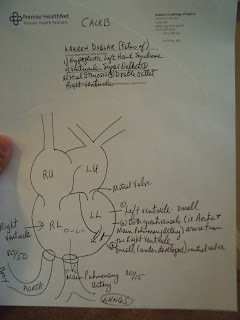 Premier HealthNet
Premier Health Partners
CALEB
1) Hypoplastic Left Heart Syndrome
2) Ventricular Septal Defect
3) Mitral Stenosis 4) Double Outlet
Right Ventricle
RU
LU
Mitral Valve
Right
Ventricle
RL
LL
1) Left ventricle small
2) both great vessels (ie Aorta &
Main Pulmonary Artery) arise from
the Right Ventricle
3) Small (under developed) mitral valve
80/50
BODY
AORTA
Main Pulmonary
Artery
80/15
LUNGS